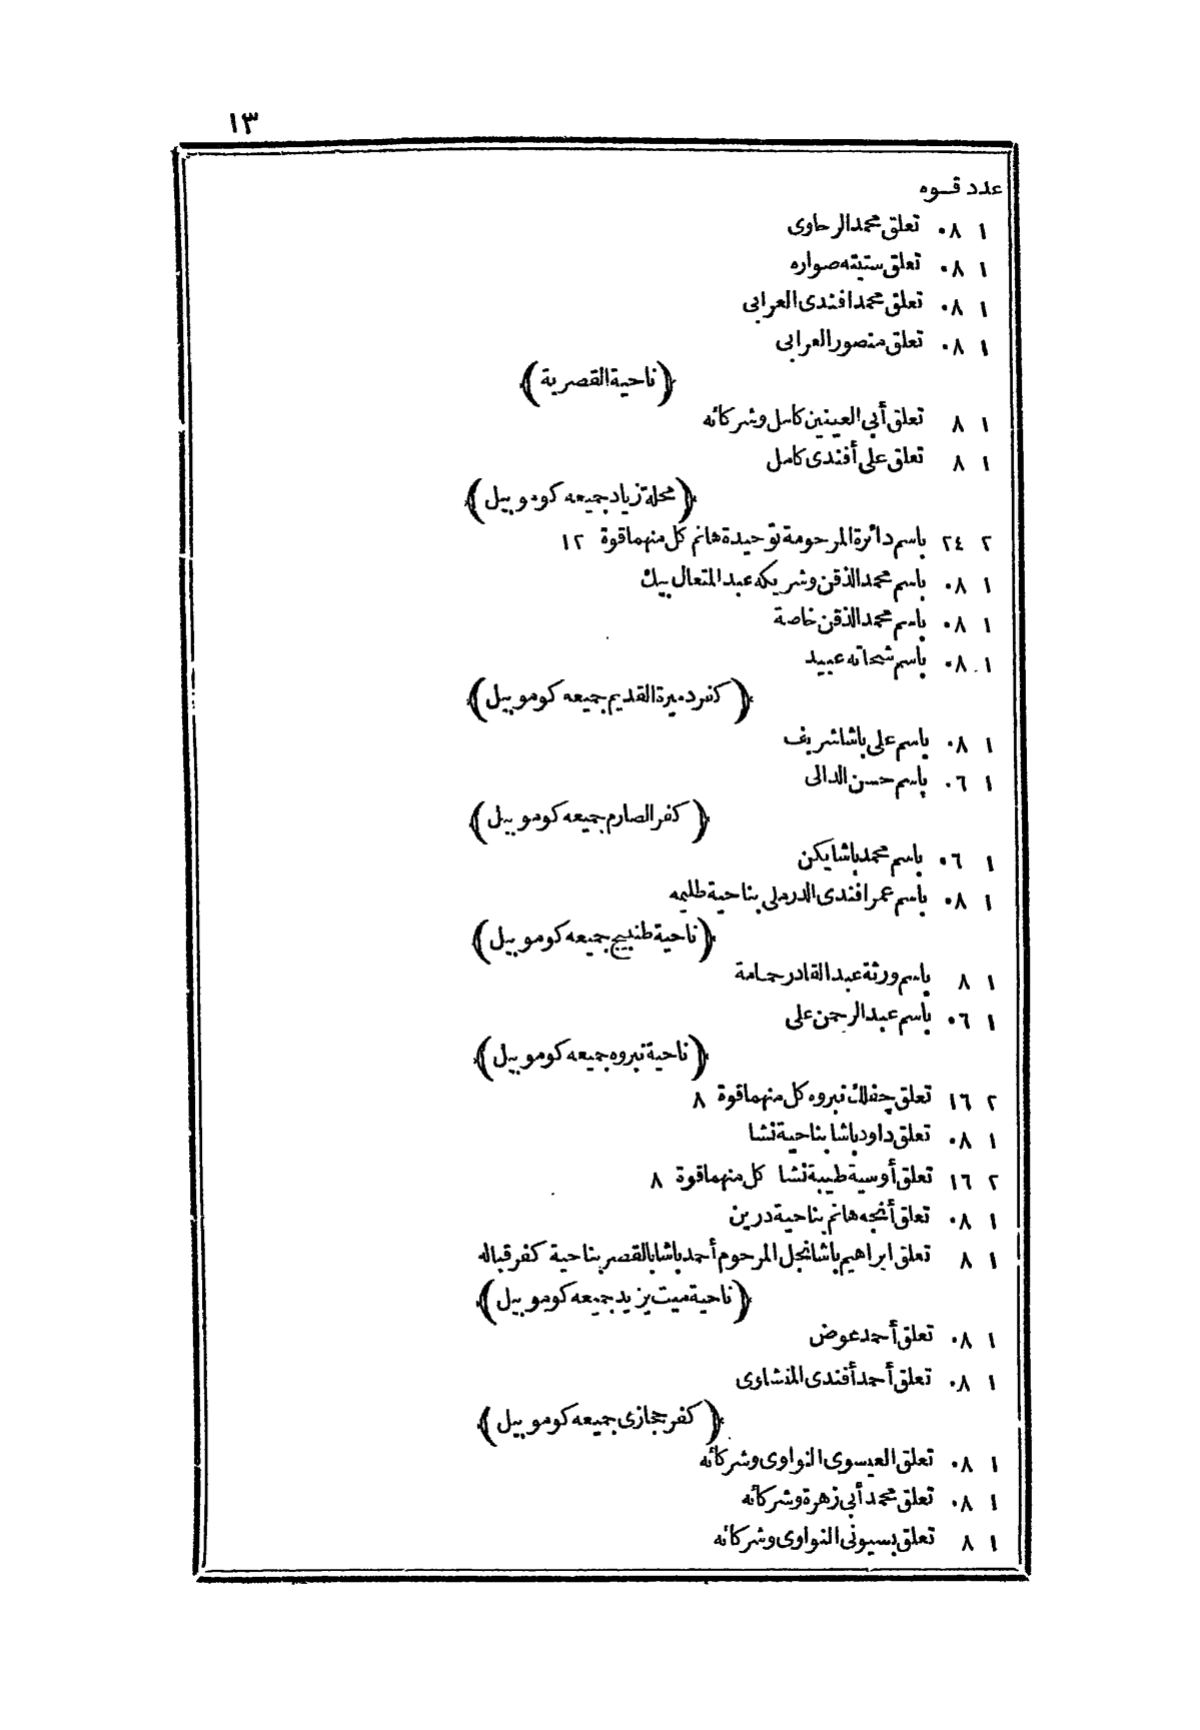 ١٣
عدد قـوه
١ ٠٨ تعلق محمد الرحاوى
١ ٠٨ تعلق ستيته صواره
١ ٠٨ تعلق محمد افندى العرابى
١ ٠٨ تعلق منصور العرابى
(ناحية القصرية)
١ ٨ تعلق أبى العينين كامل وشركائه
١ ٨ تعلق على أفندى كامل
(محلة زياد جميعه كوموبيل)
٢ ٢٤ باسم دائرة المرحومة توحيدة هانم كل منهما قوة ١٢
١ ٠٨ باسم محمد الذقن وشريكه عبد المتعال بيك
١ ٠٨ باسم محمد الذقن خاصة
١ ٠٨ باسم شحاته عبيد
(كفر دميرة القديم جميعه كوموبيل)
١ ٠٨ باسم على باشا شريف
١ ٠٦ باسم حسن الدالى
(كفر الصارم جميعه كوموبيل)
١ ٠٦ باسم محمد باشا يكن
١ ٠٨ باسم عمر افندى الدرملى بناحية طليمه
(ناحية طنبيج جميعه كوموبيل)
١ ٨ باسم ورثة عبد القادر حمامة
١ ٠٦ باسم عبد الرحمن على
(ناحية نبروه جميعه كوموبيل)
٢ ١٦ تعلق چفلك نبروه كل منهما قوة ٨
١ ٠٨ تعلق داود باشا بناحية نشا
٢ ١٦ تعلق أوسية طيبة نشا كل منهما قوة ٨
١ ٠٨ تعلق أنجه هانم بناحية درين
١ ٨ تعلق ابراهيم باشا نجل المرحوم أحمد باشا بالقصر بناحية كفر قباله
(ناحية ميت يزيد جميعه كوموبيل)
١ ٠٨ تعلق أحمد عوض
١ ٠٨ تعلق أحمد أفندى المنشاوى
(كفر حجازى جميعه كوموبيل)
١ ٠٨ تعلق العيسوى النواوى وشركائه
١ ٠٨ تعلق محمد أبى زهرة وشركائه
١ ٨ تعلق بسيونى النواوى وشركائه